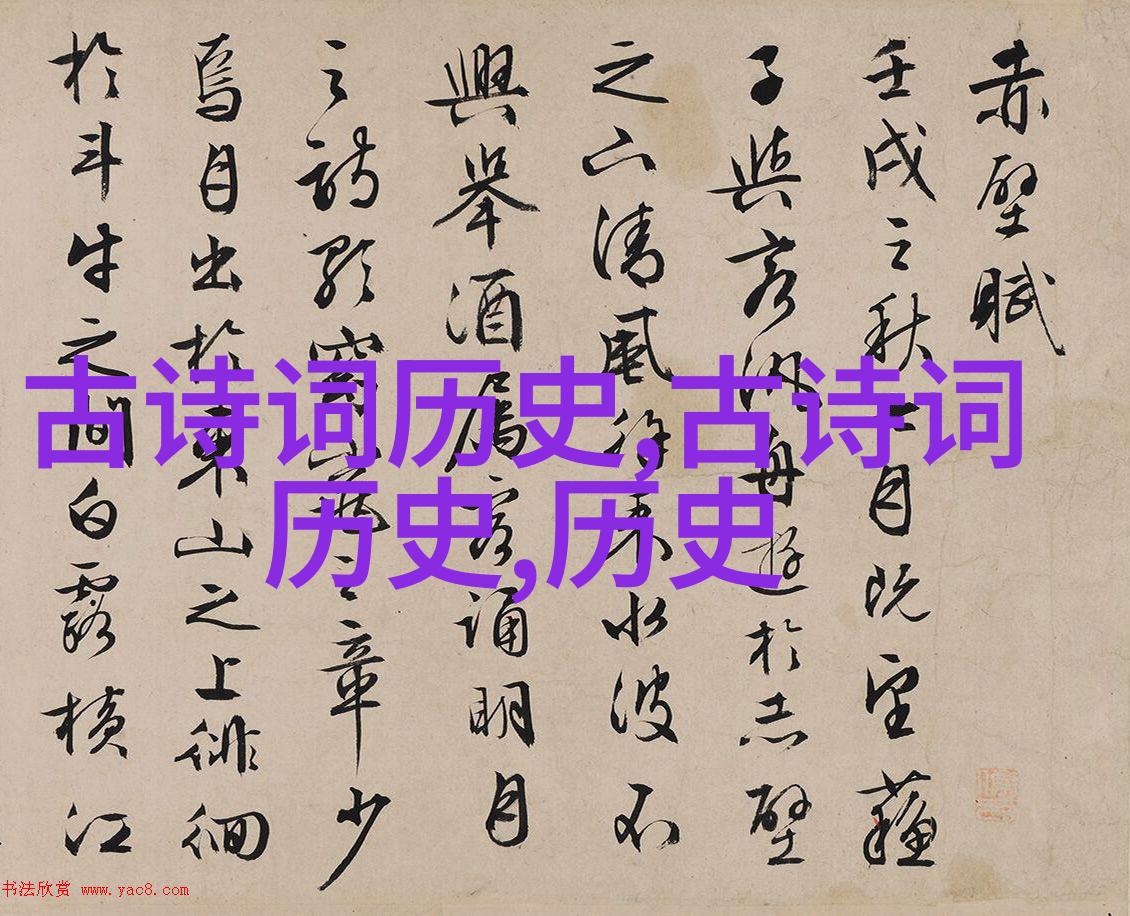 赤壁賦
壬戌之秋七月既望蘇
子與客汎舟遊於赤壁
之下清風徐來水波不
興舉酒屬客誦明月
之詩歌窈窕之章少
焉月出於東山之上徘徊
於斗牛之間白露橫江
古诗词历史,古诗词
历史,历史
书法欣赏 www.yac8.com